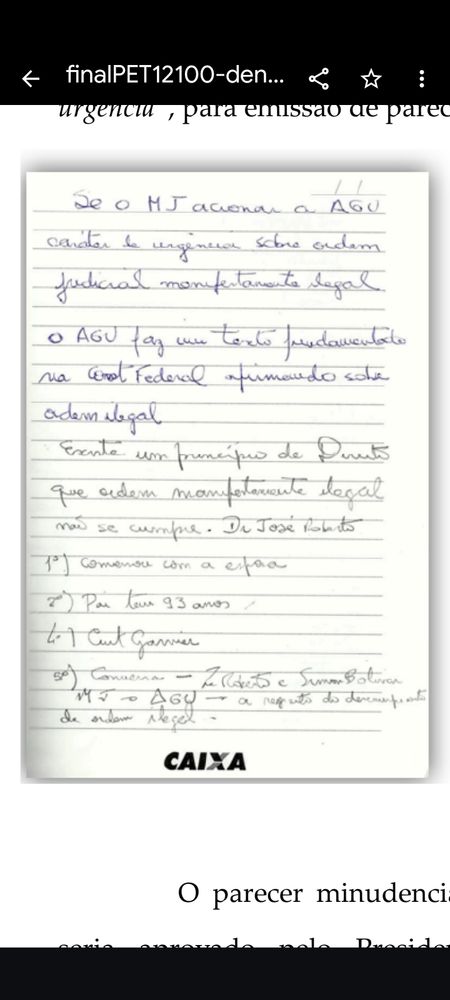 finalPET12100-den...
urgência", para emissão de parec
Se o MJ acionar a AGU
caráter de urgência sobre ordem
judicial manifestamente ilegal
O AGU faz um texto fundamentado
na Const Federal afirmando sobre
ordem ilegal
Existe um princípio de Direito
que ordem manifestamente ilegal
não se cumpre. Dr José Roberto
1º) Começou com a
2º) Pai tem 93 anos
4-) Cmt Garnier
5º) Conversa — Zé Roberto e Simon Bolivar
MJ → AGU — a respeito do
de ordem ilegal -
CAIXA
O parecer minudencia
seria aprovado pelo Presiden